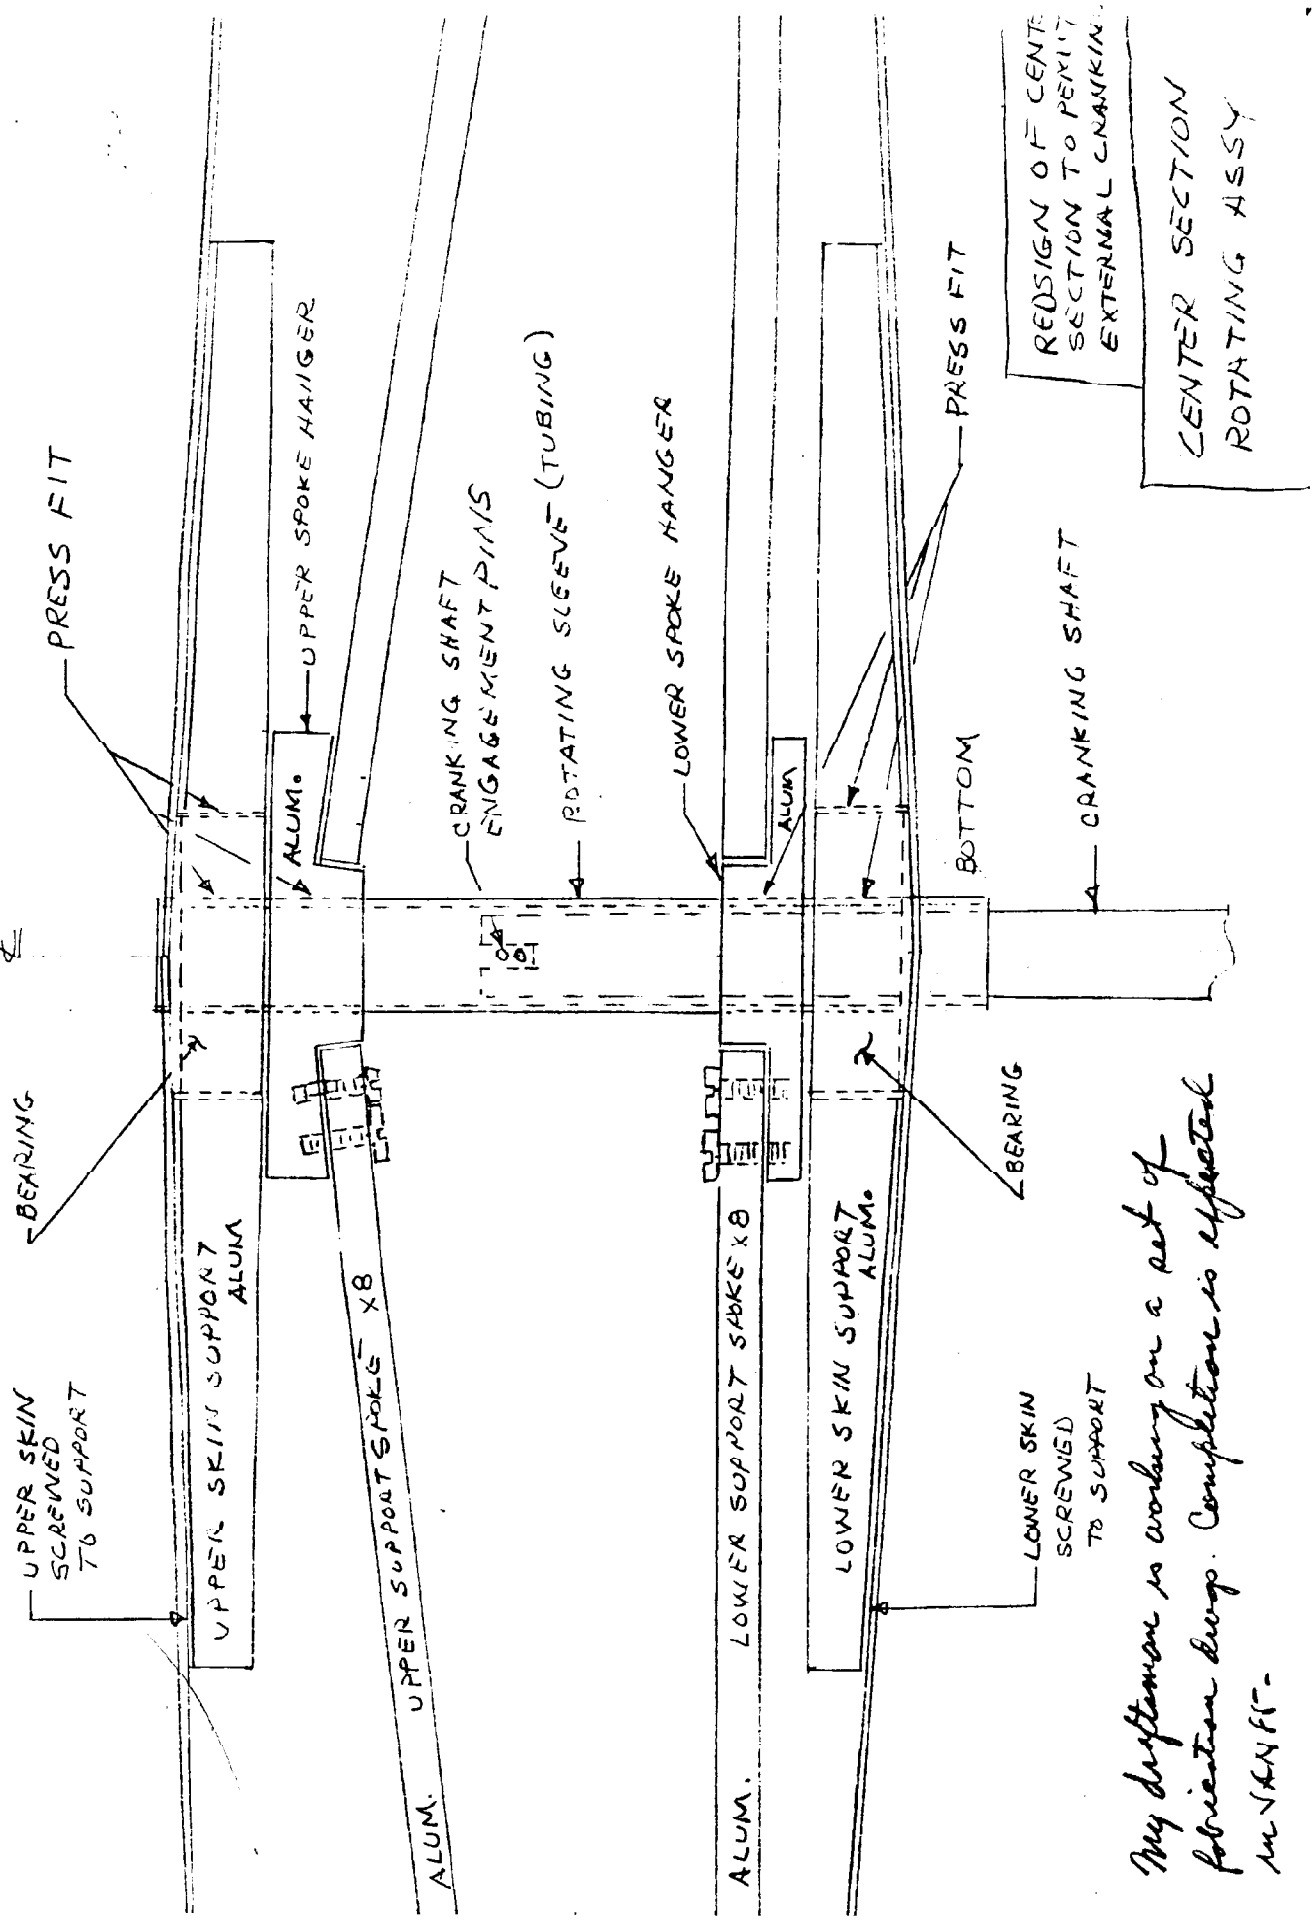 UPPER SKIN
SCREWED
TO SUPPORT
BEARING
PRESS FIT
UPPER SKIN SUPPORT
ALUM
ALUM.
UPPER SPOKE HANGER
ALUM.
UPPER SUPPORT SPOKE X8
CRANKING SHAFT
ENGAGEMENT PINS
ROTATING SLEEVE (TUBING)
LOWER SPOKE HANGER
ALUM.
LOWER SUPPORT SPOKE X8
ALUM
LOWER SKIN SUPPORT
ALUM.
PRESS FIT
BOTTOM
LOWER SKIN
SCREWED
TO SUPPORT
BEARING
CRANKING SHAFT
REDSIGN OF CENTE
SECTION TO PERMIT
EXTERNAL CRANKIN
CENTER SECTION
ROTATING ASSY
My draftsman is working on a set of
fabrication dwgs. Completion is expected
in